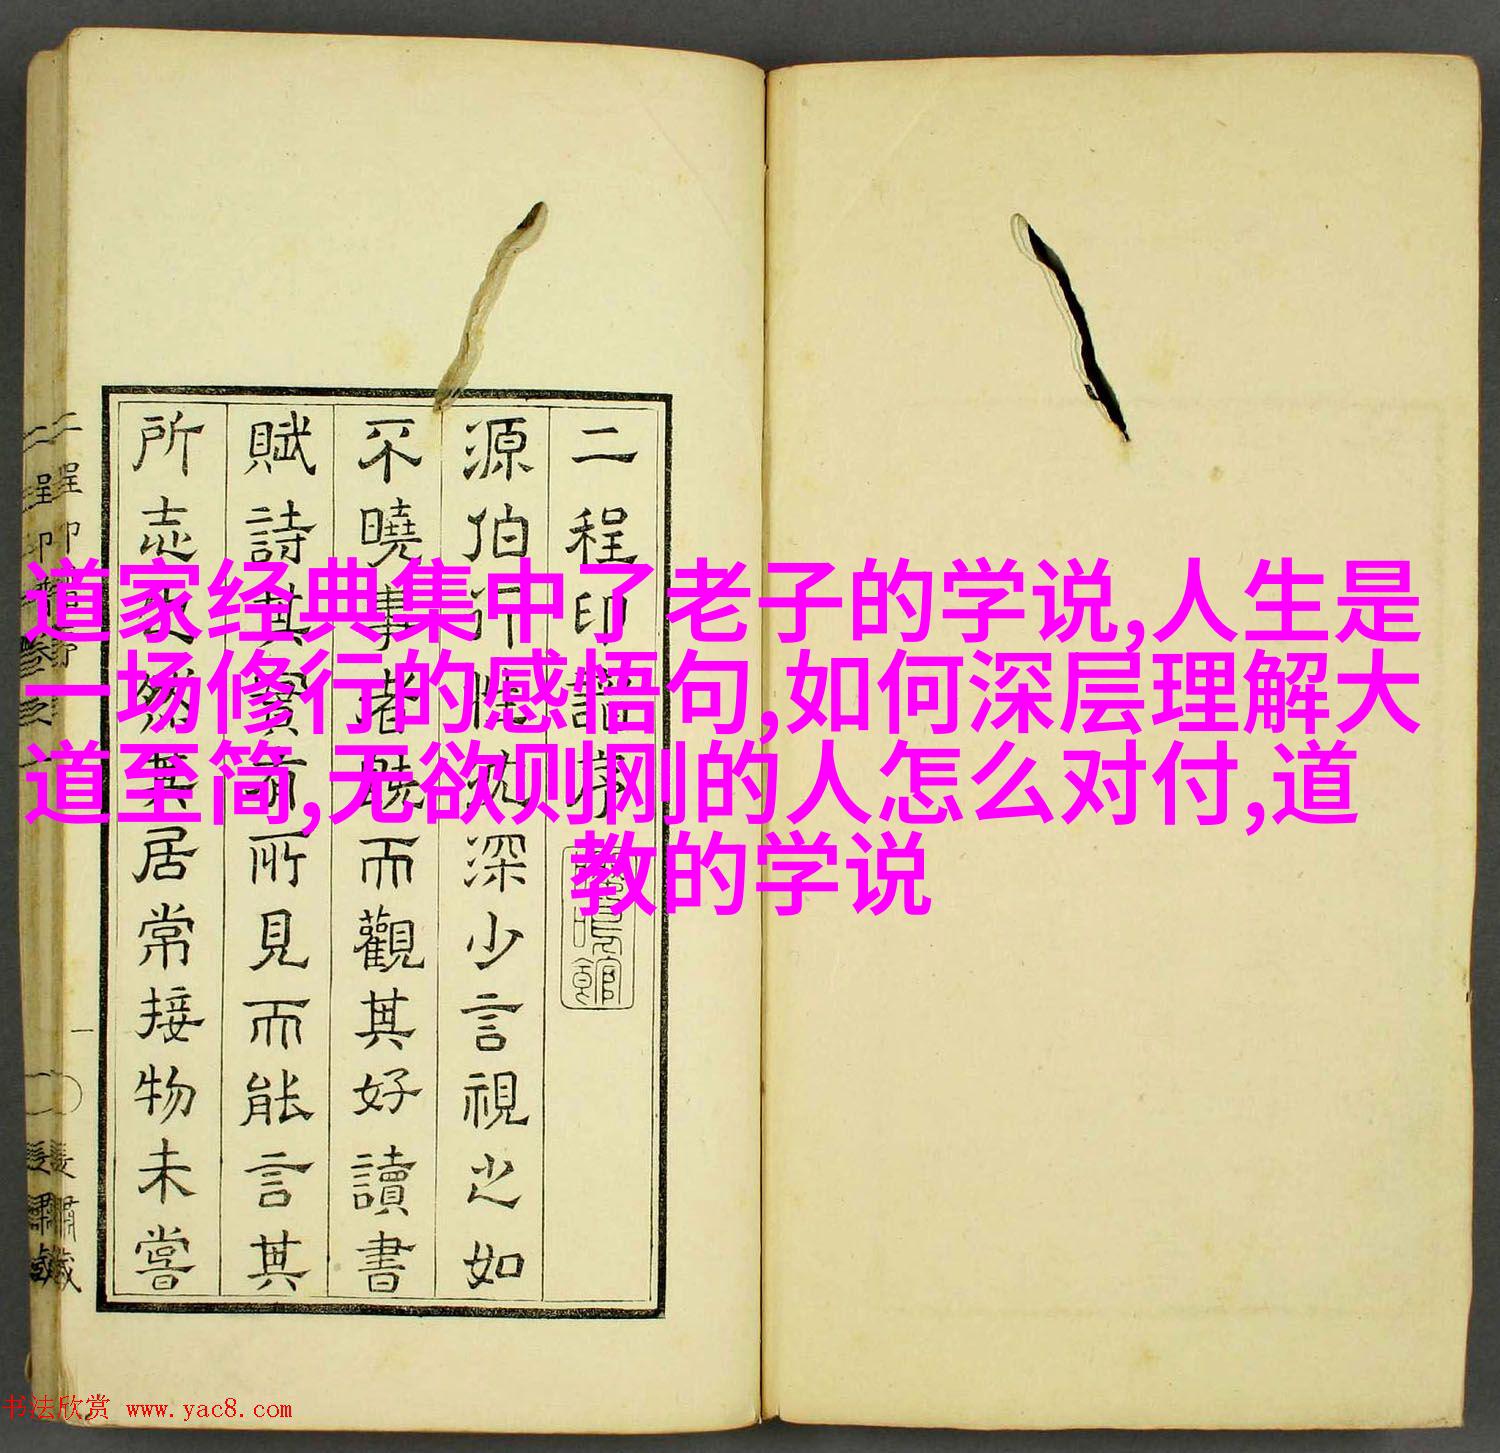 道家经典集中了老子的学说,人生是
一场修行的感悟句,如何深层理解大
道至简,无欲则刚的人怎么对付,道
教的学说
二程印譜序
源伯行性沈深少言視之如
不曉事者曉而觀其好讀書
賦詩其實有所見而能言其
所志也然其居常接物未嘗
书法欣赏 www.yac8.com